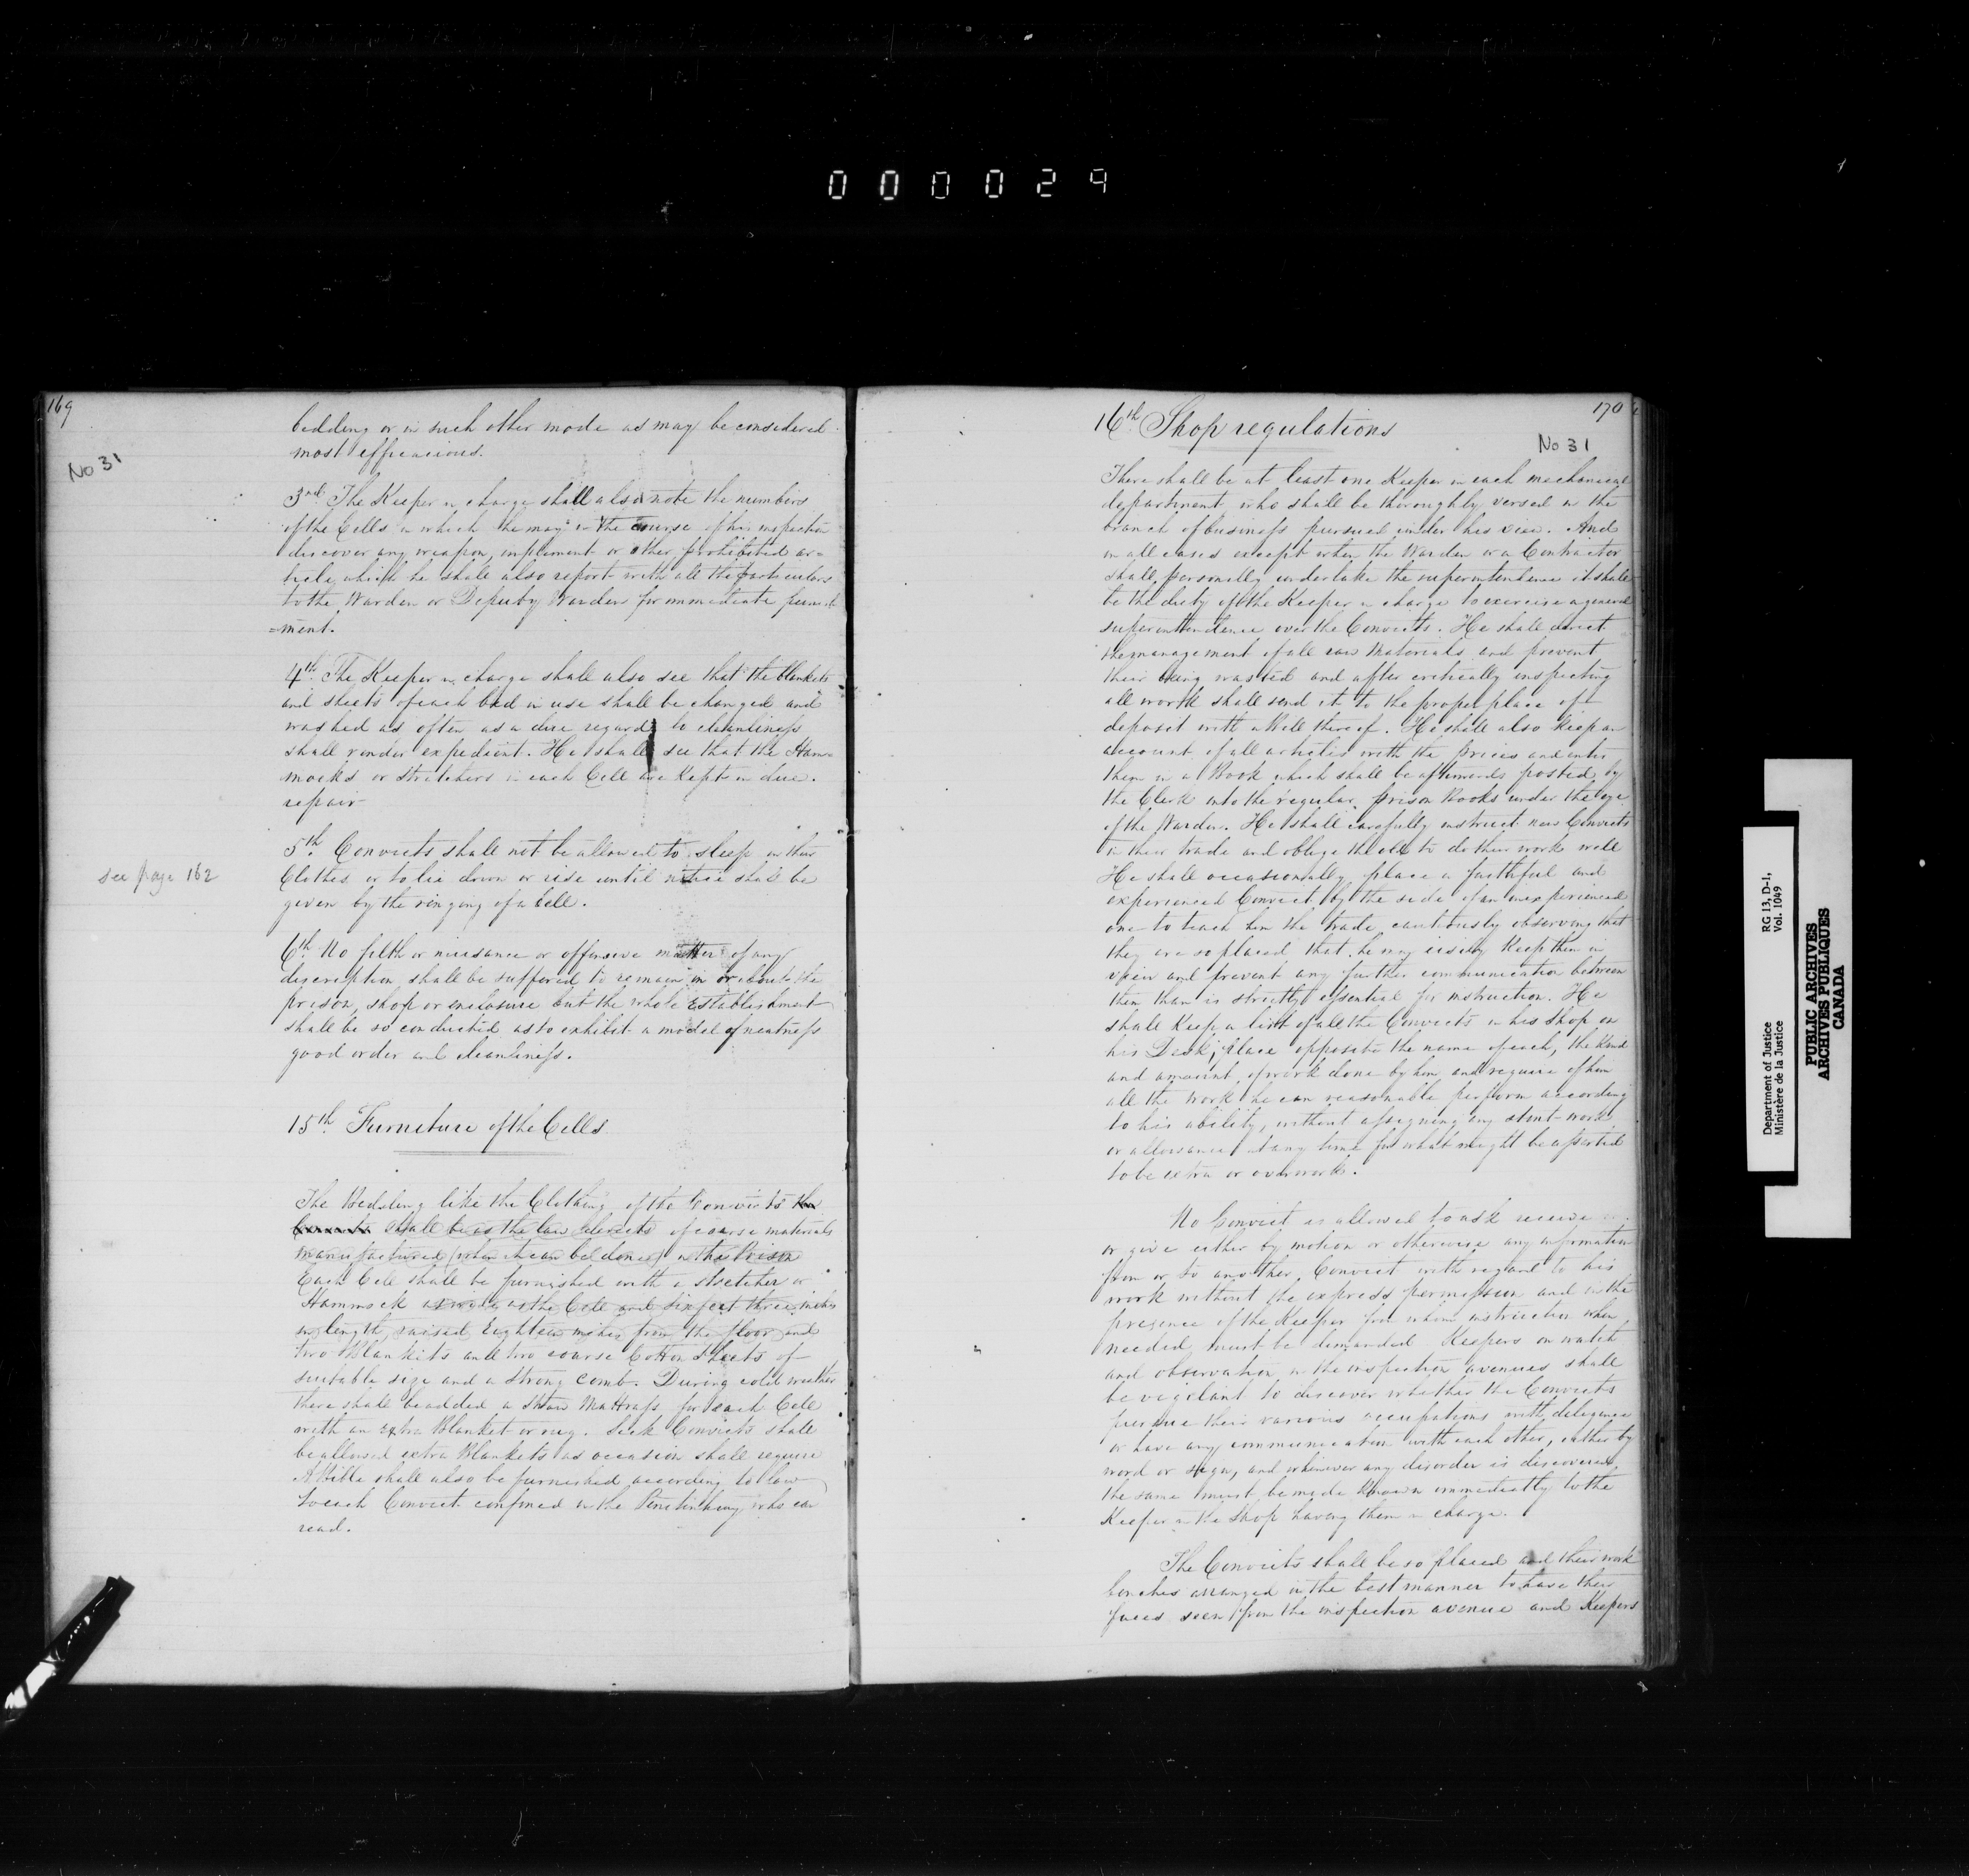 000029
169
No 31
bedding or in such other mode as may be considered
most efficacious.
3rd The Keeper in charge shall also note the numbers
of the Cells in which he may in the course of his inspection
discover any weapon, implement or other prohibited ar=
ticle, which he shall also report with all the particulars
to the Warden or Deputy Warden for immediate punish
=ment.
4th. The Keeper in charge shall also see that the blankets
and sheets of each bed in use shall be changed and
washed as often as a due regard to cleanliness
shall render expedient. He shall see that the Ham=
mocks or stretchers in each Cell are Kept in due
repair
see page 162
5th. Convicts shall not be allowed to sleep in their
Clothes or to lie down or rise until notice shall be
given by the ringing of a bell.
6th. No filth or nuisance or offensive matter of any
description shall be suffered to remain in or about the
prison, shop or enclosure but the whole Establishment
shall be so conducted as to exhibit a model of neatness
good order and cleanliness.
15th. Furniture of the Cells
The Bedding like the Clothing of the Convicts the
shall be as the law directs of coarse materials
manufactured (when it can be done) in the Prison
Each Cell shall be furnished with a stretcher or
Hammock as wide as the Cell and six feet three inches
in length, raised Eighteen inches from the floor and
two Blankets and two coarse Cotton Sheets of
suitable size and a strong comb. During cold weather
there shall be added a Straw Mattrass for each Cell
with an extra Blanket or rug. Sick Convicts shall
be allowed extra Blankets as occasion shall require
A Bible shall also be furnished according to law
to each Convict confined in the Penitentiary who can
read.
170
No 31
16th. Shop regulations
There shall be at least one Keeper in each mechanical
department, who shall be thoroughly versed in the
branch of business pursued under his view. And
in all cases except when the Warden or a Contractor
shall personally undertake the superintendence it shall
be the duty of the Keeper in charge to exercise a general
superintendence over the Convicts. He shall direct
the management of all raw Materials and prevent
their being wasted and after critically inspecting
all work shall send it to the proper place of
deposit with a Bill thereof. He shall also keep an
account of all articles with the prices and enter
them in a Book which shall be afterwards posted by
the Clerk into the regular prison Books under the eye
of the Warden. He shall carefully instruct new Convicts
in their trade and oblige the old to do their work well
He shall occasionally place a faithful and
experienced Convict by the side of an inexperienced
one to teach him the trade cautiously observing that
they are so placed that he may easily Keep them in
view and prevent any further communication between
them than is strictly essential for instruction. He
shall Keep a list of all the Convicts in his shop on
his Desk, place opposite the name of each, the Kind
and amount of work done by him and require of him
all the work he can reasonable perform according
to his ability, without assigning any stint-work
or allowance at any time for what might be asserted
to be extra or overwork.
No Convict is allowed to ask receive
or give either by motion or otherwise any information
from or to another Convict with regard to his
work without the express permission and in the
presence of the Keeper from whom instruction when
needed must be demanded Keepers on watch
and observation in the inspection avenues shall
be vigilant to discover whether the Convicts
pursue their various occupations with deligence
or have any communication with each other, either by
word or sign, and whenever any disorder is discovered
the same must be made Known immediately to the
Keeper in the Shop having them in charge.
The Convicts shall be so placed and their work
benches arranged in the best manner to have their
faces seen from the inspection avenue and Keepers
Department of Justice
Ministère de la Justice
RG 13, D-1,
Vol. 1049
PUBLIC ARCHIVES
ARCHIVES PUBLIQUES
CANADA